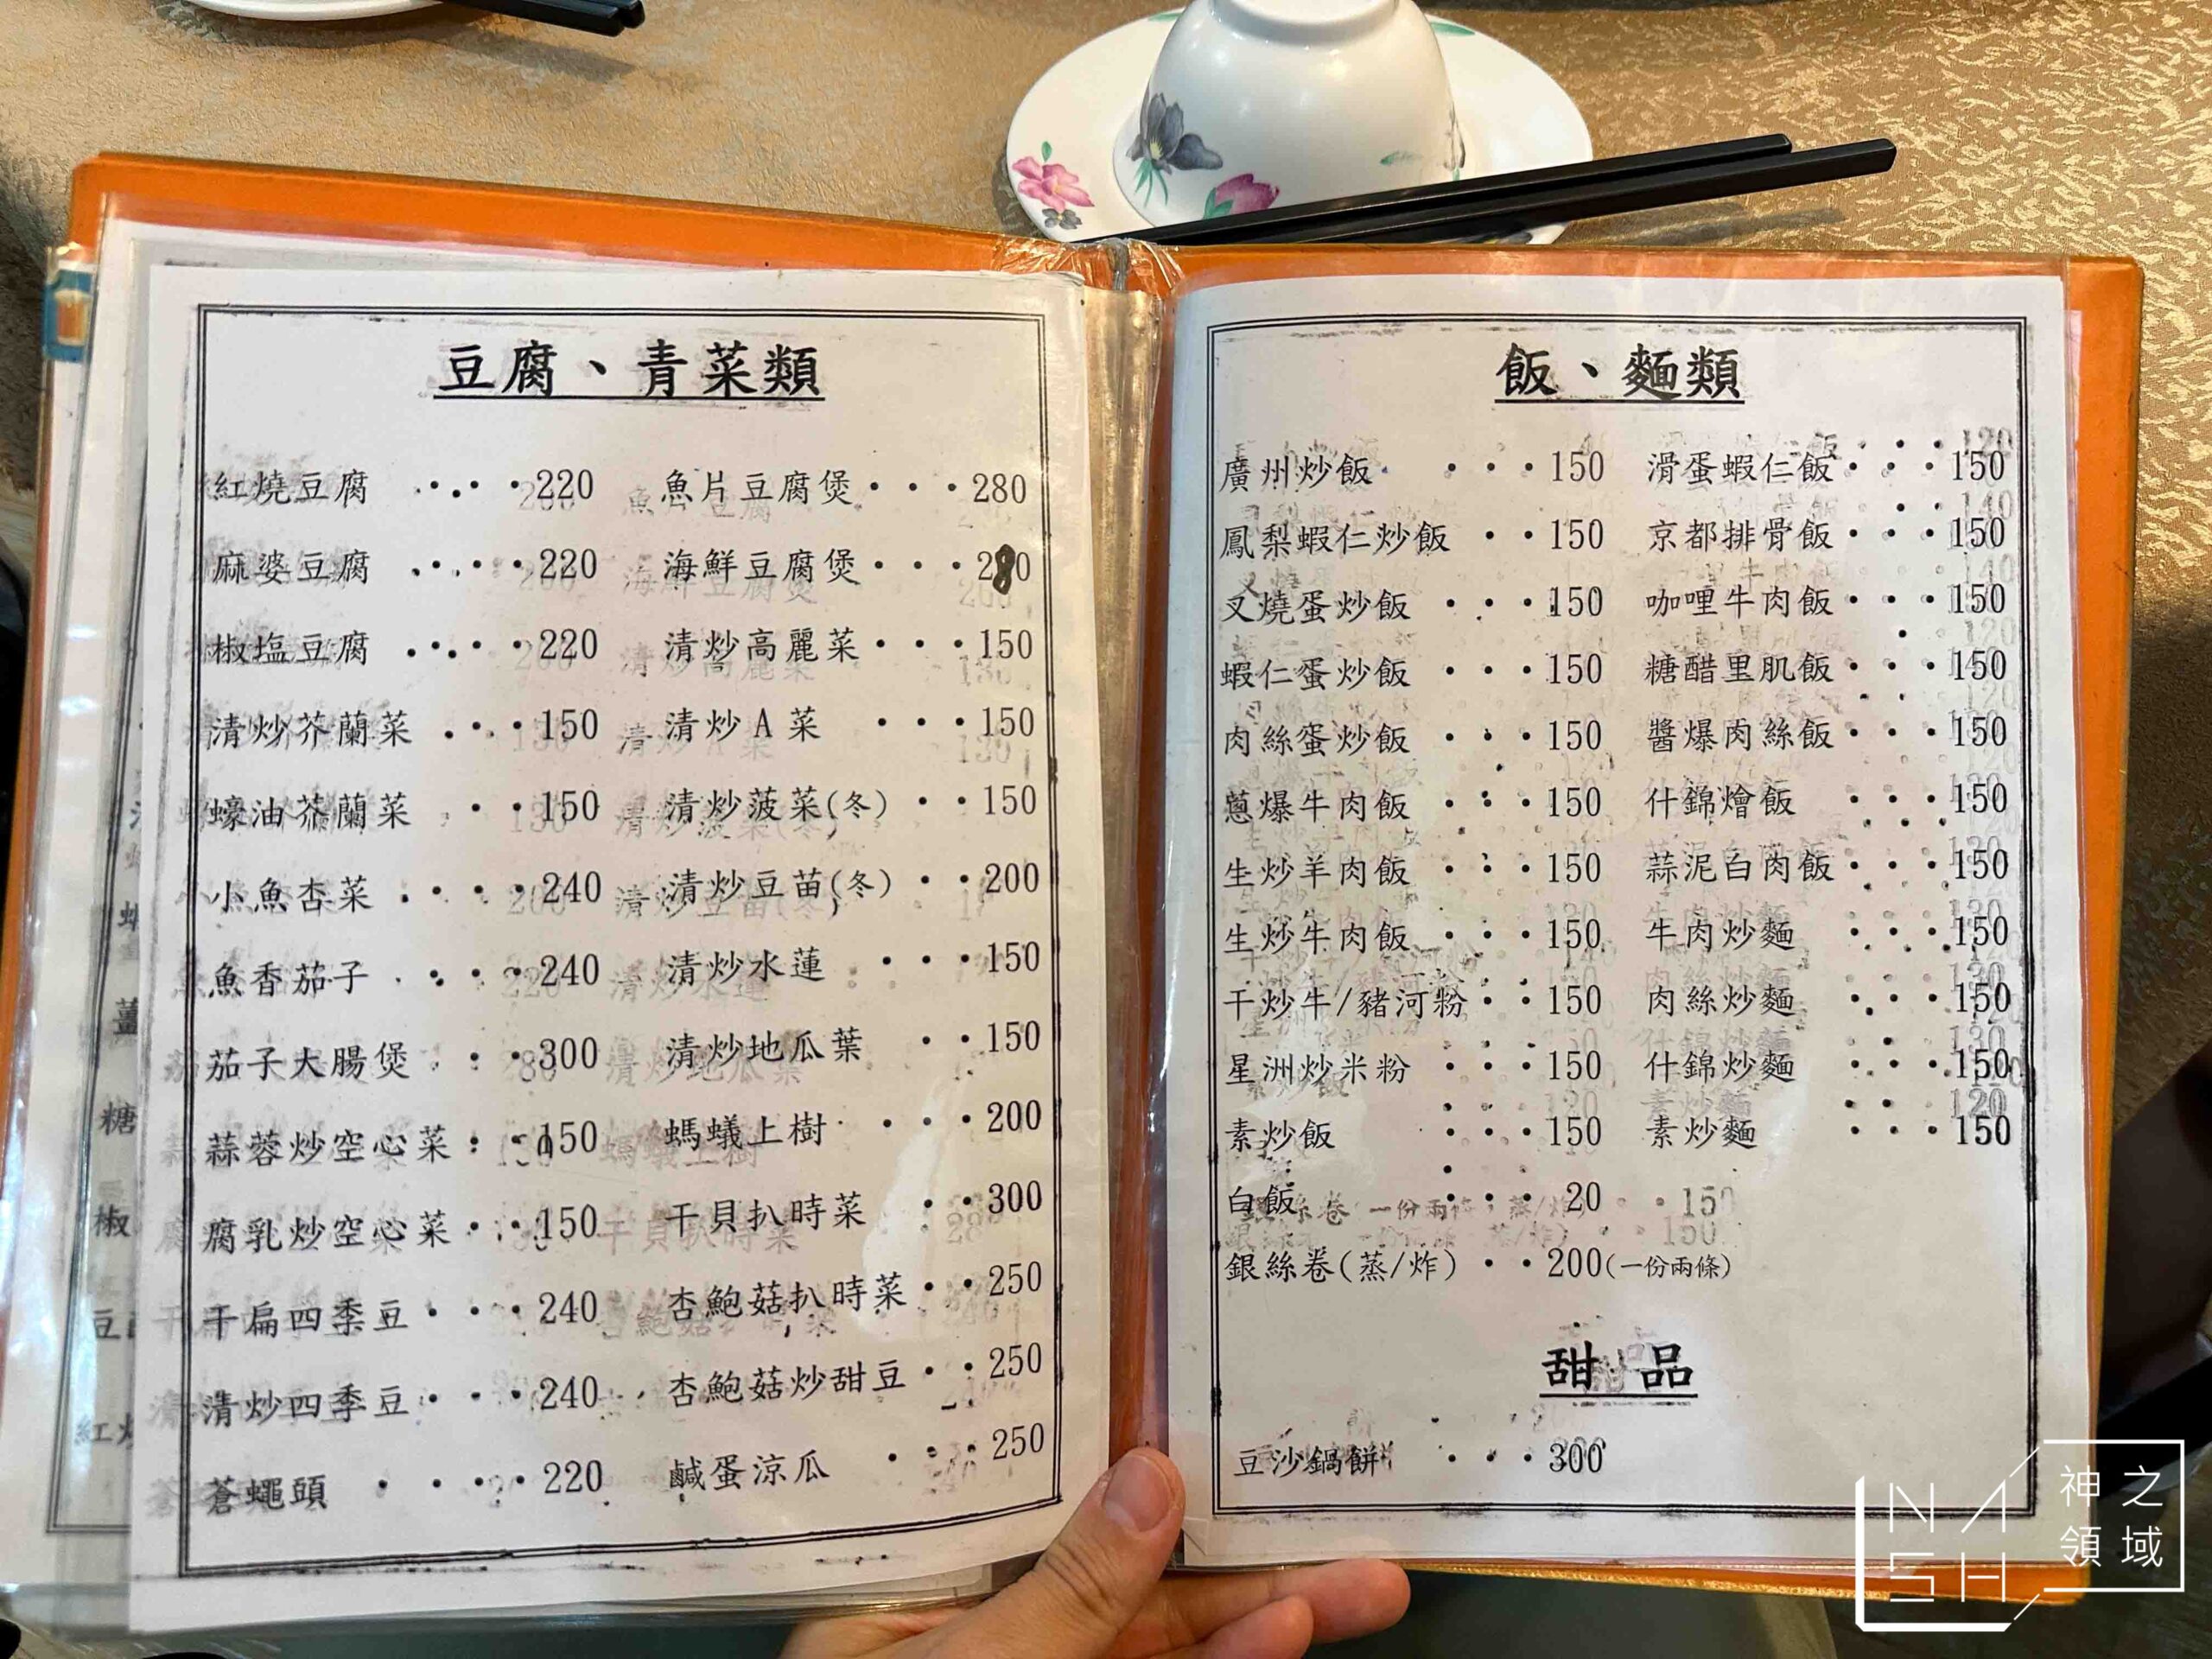 豆腐、青菜類
紅燒豆腐 ‧‧‧‧220 魚片豆腐煲‧‧‧280
麻婆豆腐 ‧‧‧‧220 海鮮豆腐煲‧‧‧280
椒塩豆腐 ‧‧‧‧220 清炒高麗菜‧‧‧150
清炒芥蘭菜 ‧‧‧150 清炒A菜 ‧‧‧150
蠔油芥蘭菜 ‧‧150 清炒菠菜(冬)‧‧150
小魚杏菜 ‧‧‧‧240 清炒豆苗(冬)‧‧200
魚香茄子 ‧‧‧‧240 清炒水蓮 ‧‧‧150
茄子大腸煲 ‧‧300 清炒地瓜葉 ‧‧150
蒜蓉炒空心菜‧‧150 螞蟻上樹 ‧‧‧200
腐乳炒空心菜‧‧150 干貝扒時菜 ‧‧300
干扁四季豆‧‧‧240 杏鮑菇扒時菜‧‧250
清炒四季豆‧‧‧240 杏鮑菇炒甜豆‧‧250
蒼蠅頭 ‧‧‧‧220 鹹蛋涼瓜 ‧‧‧250
飯、麵類
廣州炒飯 ‧‧‧150 滑蛋蝦仁飯‧‧‧150
鳳梨蝦仁炒飯 ‧‧150 京都排骨飯‧‧‧150
叉燒蛋炒飯 ‧‧‧150 咖哩牛肉飯‧‧‧150
蝦仁蛋炒飯 ‧‧‧150 糖醋里肌飯‧‧‧150
肉絲蛋炒飯 ‧‧‧150 醬爆肉絲飯‧‧‧150
蔥爆牛肉飯 ‧‧‧150 什錦燴飯 ‧‧‧150
生炒羊肉飯 ‧‧‧150 蒜泥白肉飯‧‧‧150
生炒牛肉飯 ‧‧‧150 牛肉炒麵 ‧‧‧150
干炒牛/豬河粉‧‧150 肉絲炒麵 ‧‧‧150
星洲炒米粉 ‧‧‧150 什錦炒麵 ‧‧‧150
素炒飯 ‧‧‧150 素炒麵 ‧‧‧150
白飯 ‧‧‧20
銀絲卷(蒸/炸)‧‧200(一份兩條)
甜品
豆沙鍋餅 ‧‧‧300
薑
糖
椒
豆
紅
NASH
神之
領域